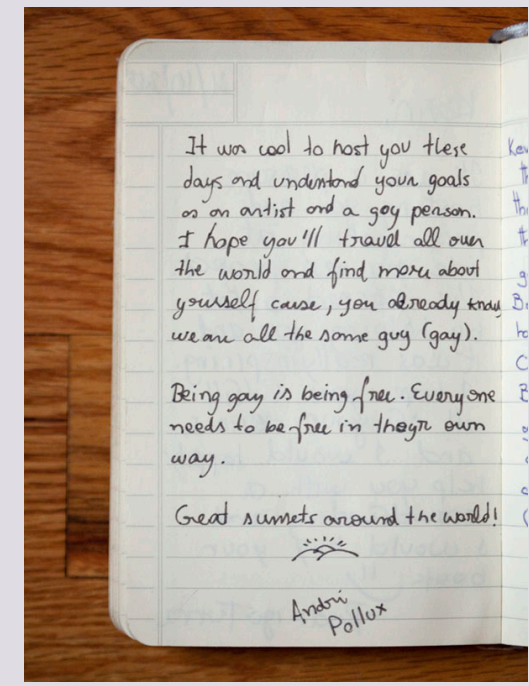 It was cool to host you these
days and understand your goals
as an artist and a gay person.
I hope you'll travel all over
the world and find more about
yourself cause, you already know
we are all the same guy (gay).
Being gay is being free. Everyone
needs to be free in theyr own
way.
Great sunsets around the world!
Andri
Pollux